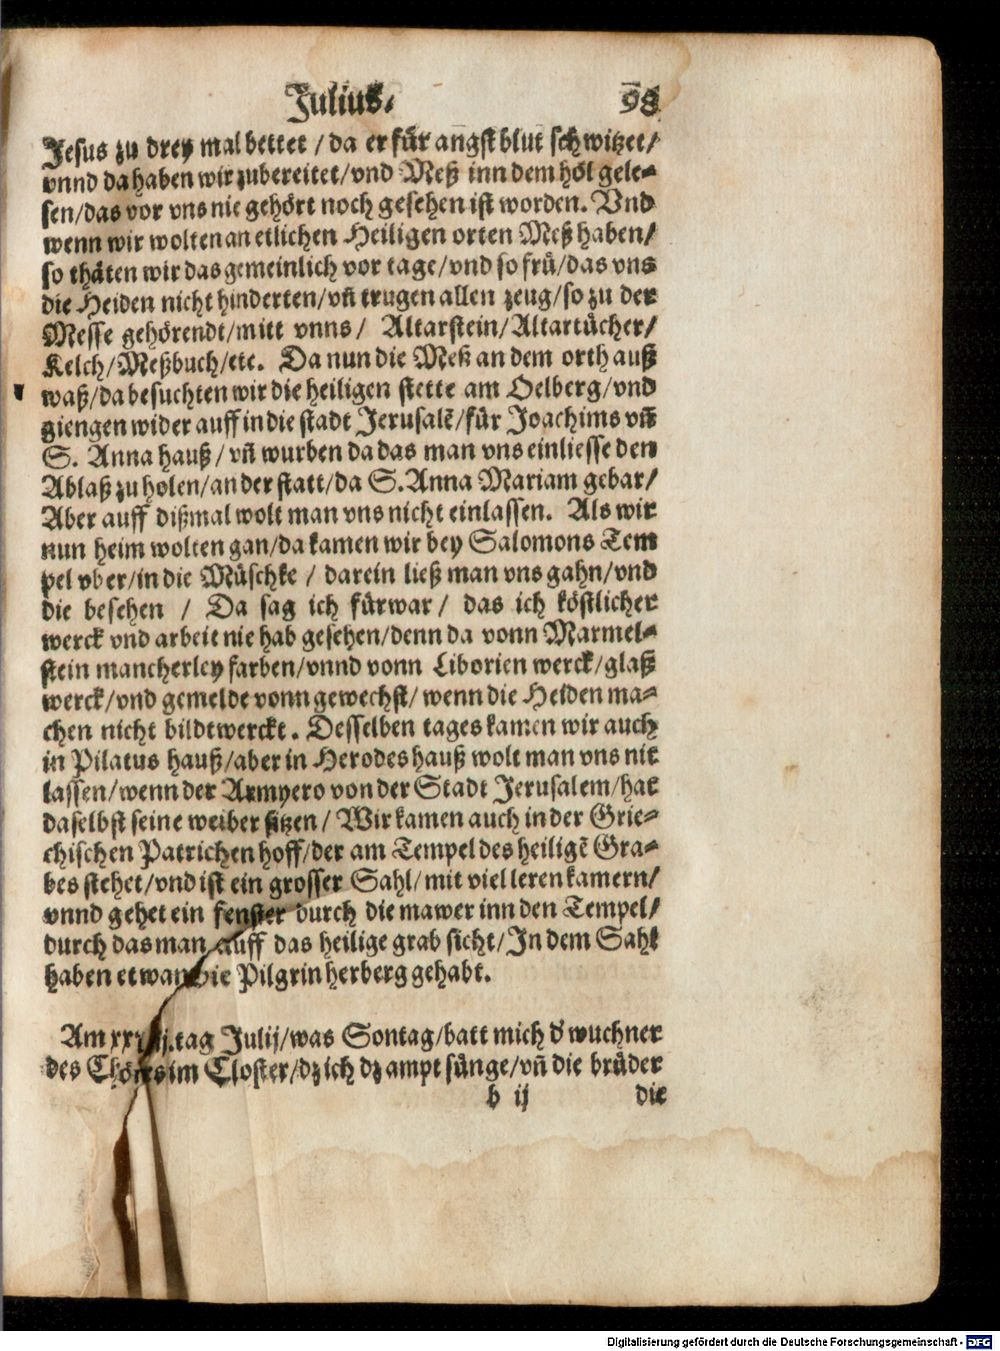 Julius/ 98
Jesus zu drey mal bettet / da er für angst blut schwitzet/
vnnd da haben wir zubereitet/vnd Meß inn dem höl gele-
sen/das vor vns nie gehört noch gesehen ist worden. Vnd
wenn wir wolten an etlichen Heiligen orten Meß haben/
so thäten wir das gemeinlich vor tage/vnd so frü/das vns
die Heiden nicht hinderten/vñ trugen allen zeug/so zu der
Messe gehörendt/mitt vnns/ Altarstein/Altartücher/
Kelch/Meßbuch/etc. Da nun die Meß an dem orth auß
waß/da besuchten wir die heiligen stette am Oelberg/vnd
giengen wider auff in die stadt Jerusalē/für Joachims vñ
S. Anna hauß/vñ wurben da das man vns einliesse den
Ablaß zu holen/an der statt/da S. Anna Mariam gebar/
Aber auff dißmal wolt man vns nicht einlassen. Als wir
nun heim wolten gan/da kamen wir bey Salomons Tem
pel vber/in die Müschke / darein ließ man vns gahn/vnd
die besehen / Da sag ich fürwar/ das ich köstlicher
werck vnd arbeit nie hab gesehen/denn da vonn Marmel-
stein mancherley farben/vnnd vonn Liborien werck/glaß
werck/vnd gemelde vonn gewechst/wenn die Heiden ma-
chen nicht bildtwerckt. Desselben tages kamen wir auch
in Pilatus hauß/aber in Herodes hauß wolt man vns nit
lassen/wenn der Armyero von der Stadt Jerusalem/hat
daselbst seine weiber sitzen/ Wir kamen auch in der Grie-
chischen Patrichen hoff/der am Tempel des heiligē Gra-
bes stehet/vnd ist ein grosser Sahl/mit viel leren kamern/
vnnd gehet ein fenster durch die mawer inn den Tempel/
durch das man auff das heilige grab sicht/In dem Sahl
haben etwan die Pilgrin herberg gehabt.
Am tag Julij/was Sontag/batt mich d' wuchner
des Chores im Closter/dz ich dz ampt sünge/vñ die brüder
b ij die
Digitalisierung gefördert durch die Deutsche Forschungsgemeinschaft - DFG